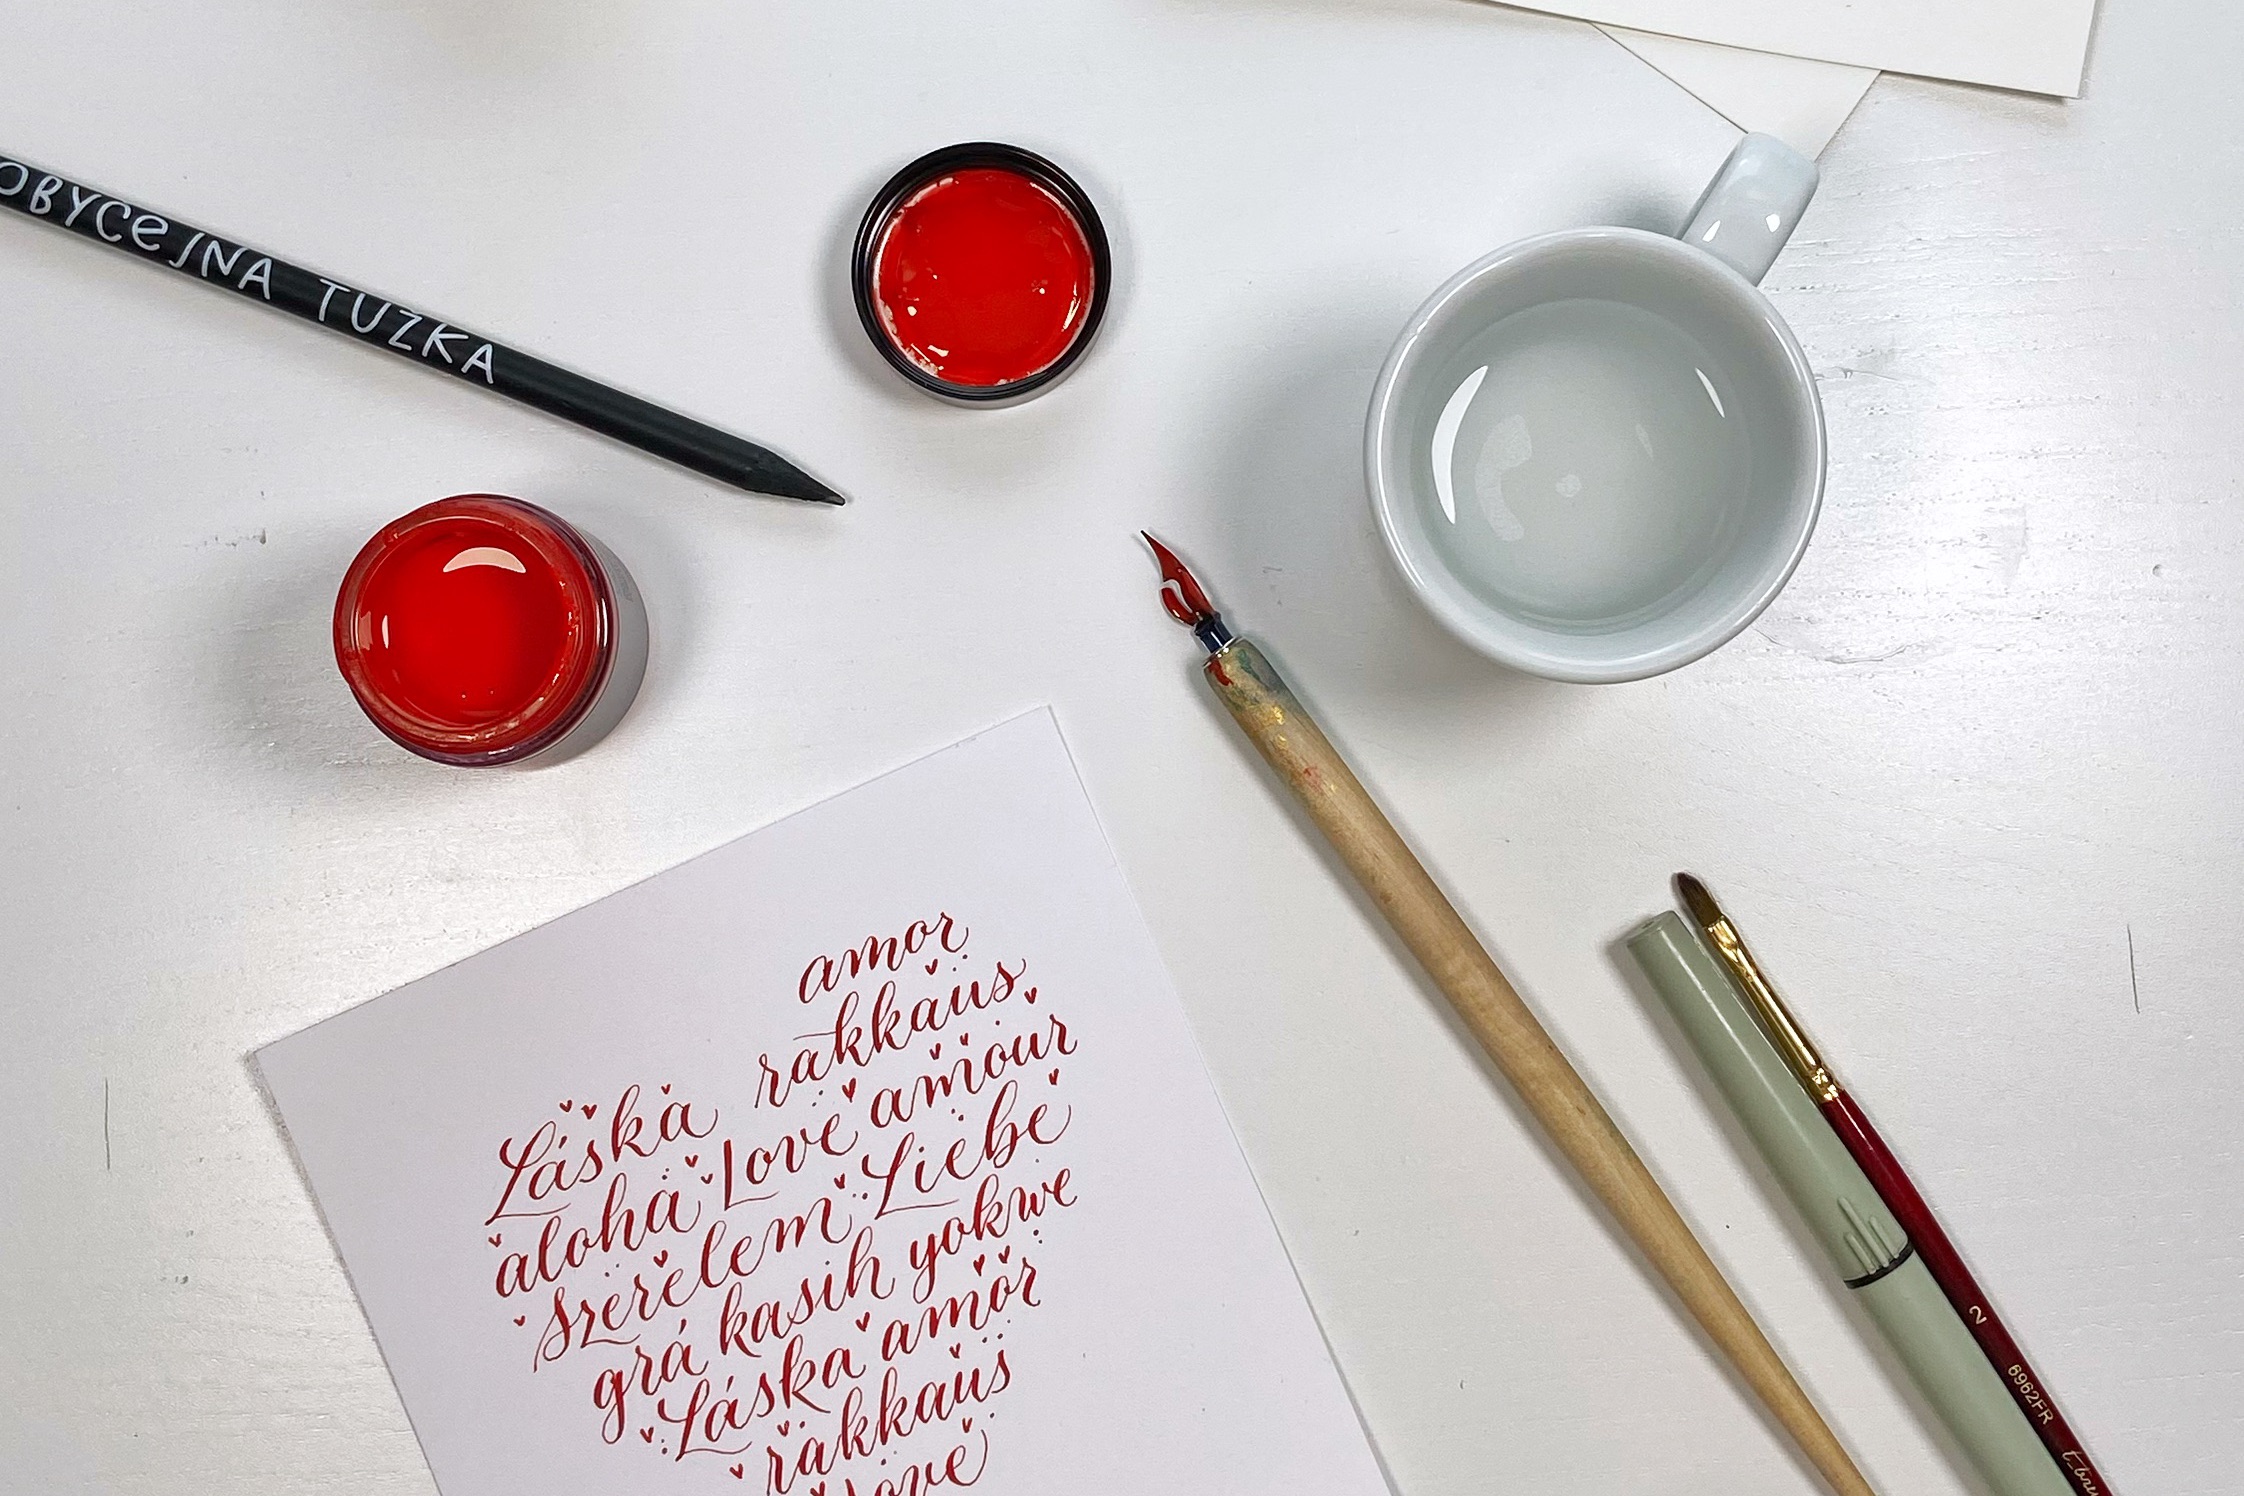 OBYČEJNA TUŽKA
amor
rakkaus
Láska
amour
aloha Love
Liebe
Szerelem
yokwe
grá kasih
Láska amor
rakkaus
love
2
6962FR